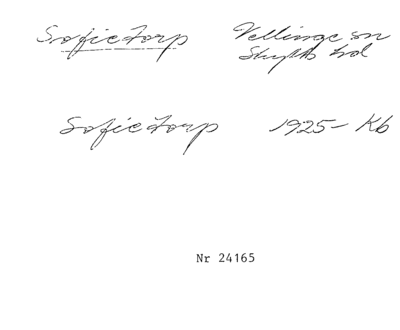 Sofietorp Vellinge sn
Skytts hd
Sofietorp 1925- Kb
Nr 24165